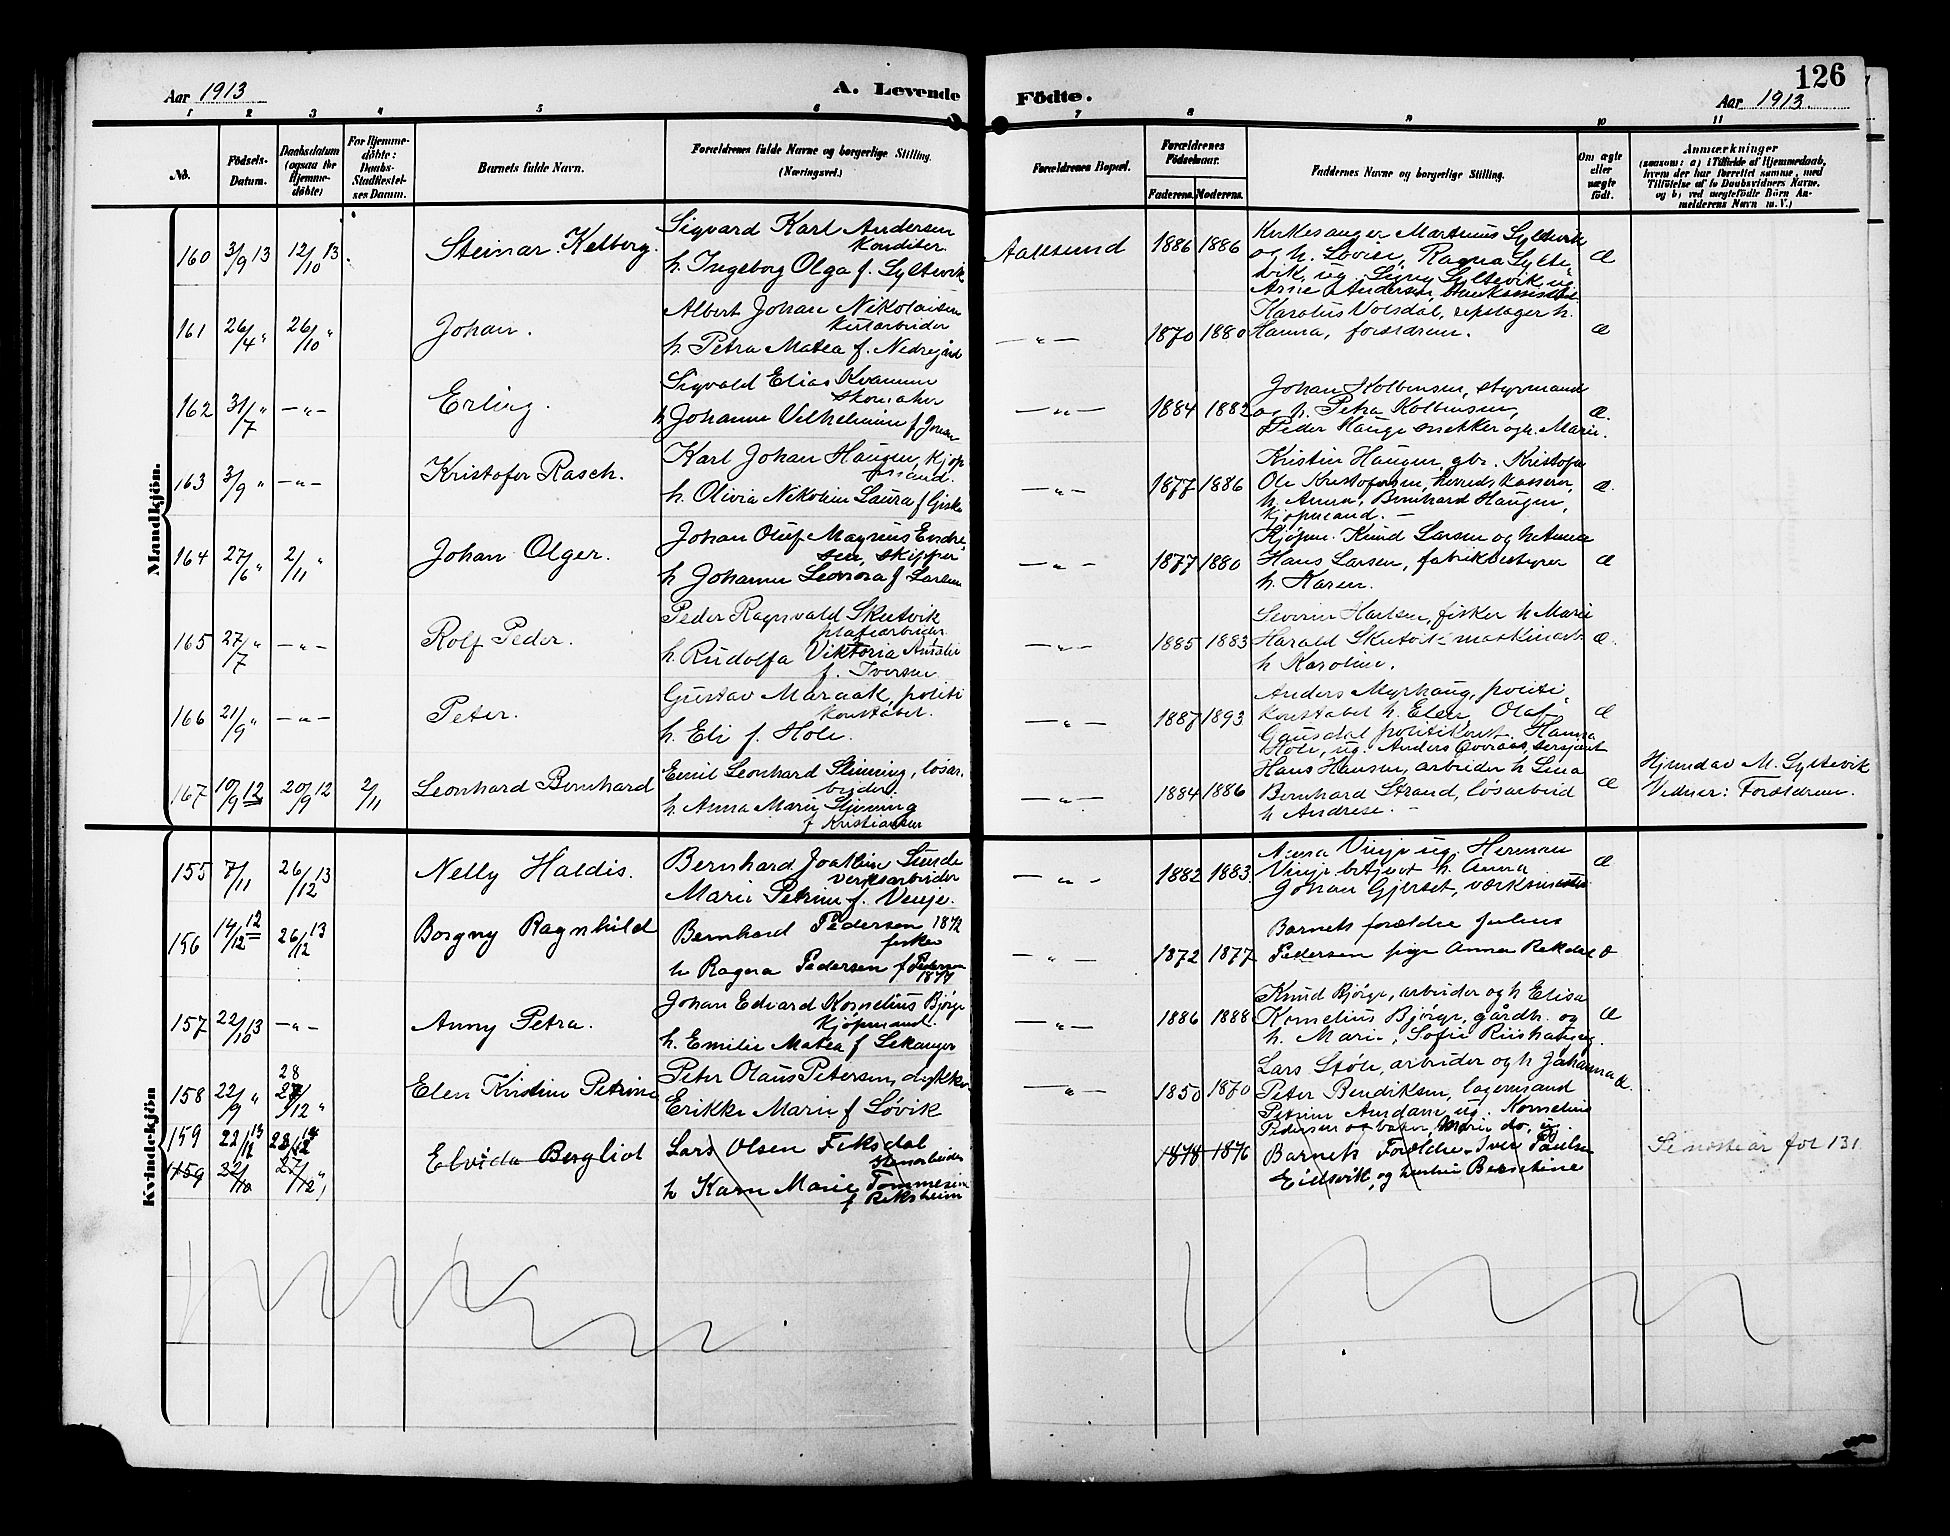 126
Aar 1913
A. Levende
Födte.
Aar 1913.
1 2 3 4 5 6 7 8 9 10 11
No.
Födsels-
Datum.
Daabsdatum
(ogsaa for
Hjemme-
döbte)
For Hjemme-
döbte:
Daabs-
Stadfæstel-
ses Datum.
Barnets fulde Navn.
Forældrenes fulde Navne og borgerlige Stilling.
(Næringsvei.)
Forældrenes Bopæl.
Forældrenes
Födselsaar.
Faderens. Moderens.
Faddernes Navne og borgerlige Stilling.
Om ægte
eller
uægte
født.
Anmærkninger
(saasom: a) i Tilfælde af Hjemmedaab,
hvem der har forrettet samme, med
Tilföielse af to Daabsvidners Navne,
og b) ved uægtefödte Börn An-
melderens Navn m. V.)
Mandkjön.
160 3/9 13 12/10 13
Steinar Kelberg.
Sigvard Karl Andersen
Konditor
h. Ingeborg Olga f. Syltevik
Aalesund
1886 1886
Kirkesanger Martinus Syltevik
og h. Lovise, Ragna Sylte-
vik, ug. Signy Syltevik, ug.
Arne Andersen,
Æ
161 26/4 " 26/10 "
Johan.
Albert Johan Nikolaisen
h. Petra Matea f. Nedregård
— " —
1870 1880
Karolus Volsdal, repslager h.
Hanna, forældrene.
Æ
162 31/7 " — " —
Erling.
Sigvald Elias Kvamme
skomaker
h. Johanne Vilhelmine f.
— " —
1884 1882
Johan Kolbensen, styrmand
og h. Petra Kolbensen,
Peder Hauge snekker og h. Marie.
Æ.
163 3/9 " — " —
Kristofer Rasch.
Karl Johan Haugen, kjøp-
mand.
h. Olivia Nikoline Laura f. Giske
— " —
1877 1886
Kristin Haugen, gbr. Kristofer
Ole Kristofersen, herredskasserer,
h. Anna, Bernhard Haugen,
kjøpmand. —
Æ.
164 27/6 " 2/11 "
Johan Olger.
Johan Oluf Magnus Endre-
sen, skipper
h Johanne Leonora f Larsen
— " —
1877 1880
Kjøpm. Knud Larsen og h Anna
Hans Larsen, fabrikbestyrer
h. Karen.
Æ
165 27/7 " — " —
Rolf Peder.
Peder Ragnvald Skutvik
platearbeider
h. Rudolfa Viktoria Amalie
f. Iversen
— " —
1885 1883
Severin Karlsen, fisker h Marie
Harald Skutvik maskinist
h Karoline.
Æ.
166 21/9 " — " —
Peter.
Gustav Maraak, politi
konstabel.
h. Eli f. Hole.
— " —
1887 1893
Anders Myrhaug, politi-
konstabel h. Elen, Olaf
Gausdal politikonst. Hanna
Hole, ug. Anders Overaas, sersjant
Æ
167 10/9 12 20/9 12 2/11
Leonhard Bernhard
Emil Leonhard Slinning, løsar-
beider.
h. Anna Marie Slinning
f Kristiansen
1884 1886
Hans Hansen, arbeider h Lina
Bernhard Strand, løsarbeid
h Andrese. —
Æ
Hjemdøv M. Syltevik
Vidner: Forældrene.
Kvindekjön
155 7/11 26/12 13
Nelly Haldis.
Bernhard Joakim Sunde
verksarbeider
Marie Petrine f. Vinje.
— " —
1882 1883.
Anna Vinje ug. Herman
Vinje betjent h. Anna
Johan Gjerset, værksmester
Æ
156 14/12 12 26/12 13
Borgny Ragnhild
Bernhard Pedersen 1872
fisker
h Ragna Pedersen f Pedersen
1877
— " —
1872 1877
Barnets forældre Julius
Pedersen pige Anna Rekdal
Æ
157 22/10 13 — " —
Anny Petra.
Johan Edvard Kornelius Bjørge
Kjøpmand.
h. Emilie Matea f Sekanger
— " —
1886 1888
Knud Bjørge, arbeider og h Elisa
Kornelius Bjørge, gårdb. og
h. Marie, Sofie Riishaug ug.
Æ
158 22/9 " 28 27/12 "
Elen Kristine Petrine
Peter Olaus Petersen, dykker
Erikke Marie f Løvik
— " —
1850 1870
Lars Støle, arbeider og h Johanna
Peter Bendiksen, lagermand
Petrine Aurdane, ug. Kornelius
Pedersen og barn, Marie do, ug.
Æ.
159 22/11 13 28/12
159 22/10 27/12 "
Elvida Bergliot
Lars Olsen Fiksdal
h Karen Marie Tommesen
f Reksheim
1878 1876
Barnets Forældre Iver Paulsen
Eidsvik, og hustru Berntine
Se næste år fol 131